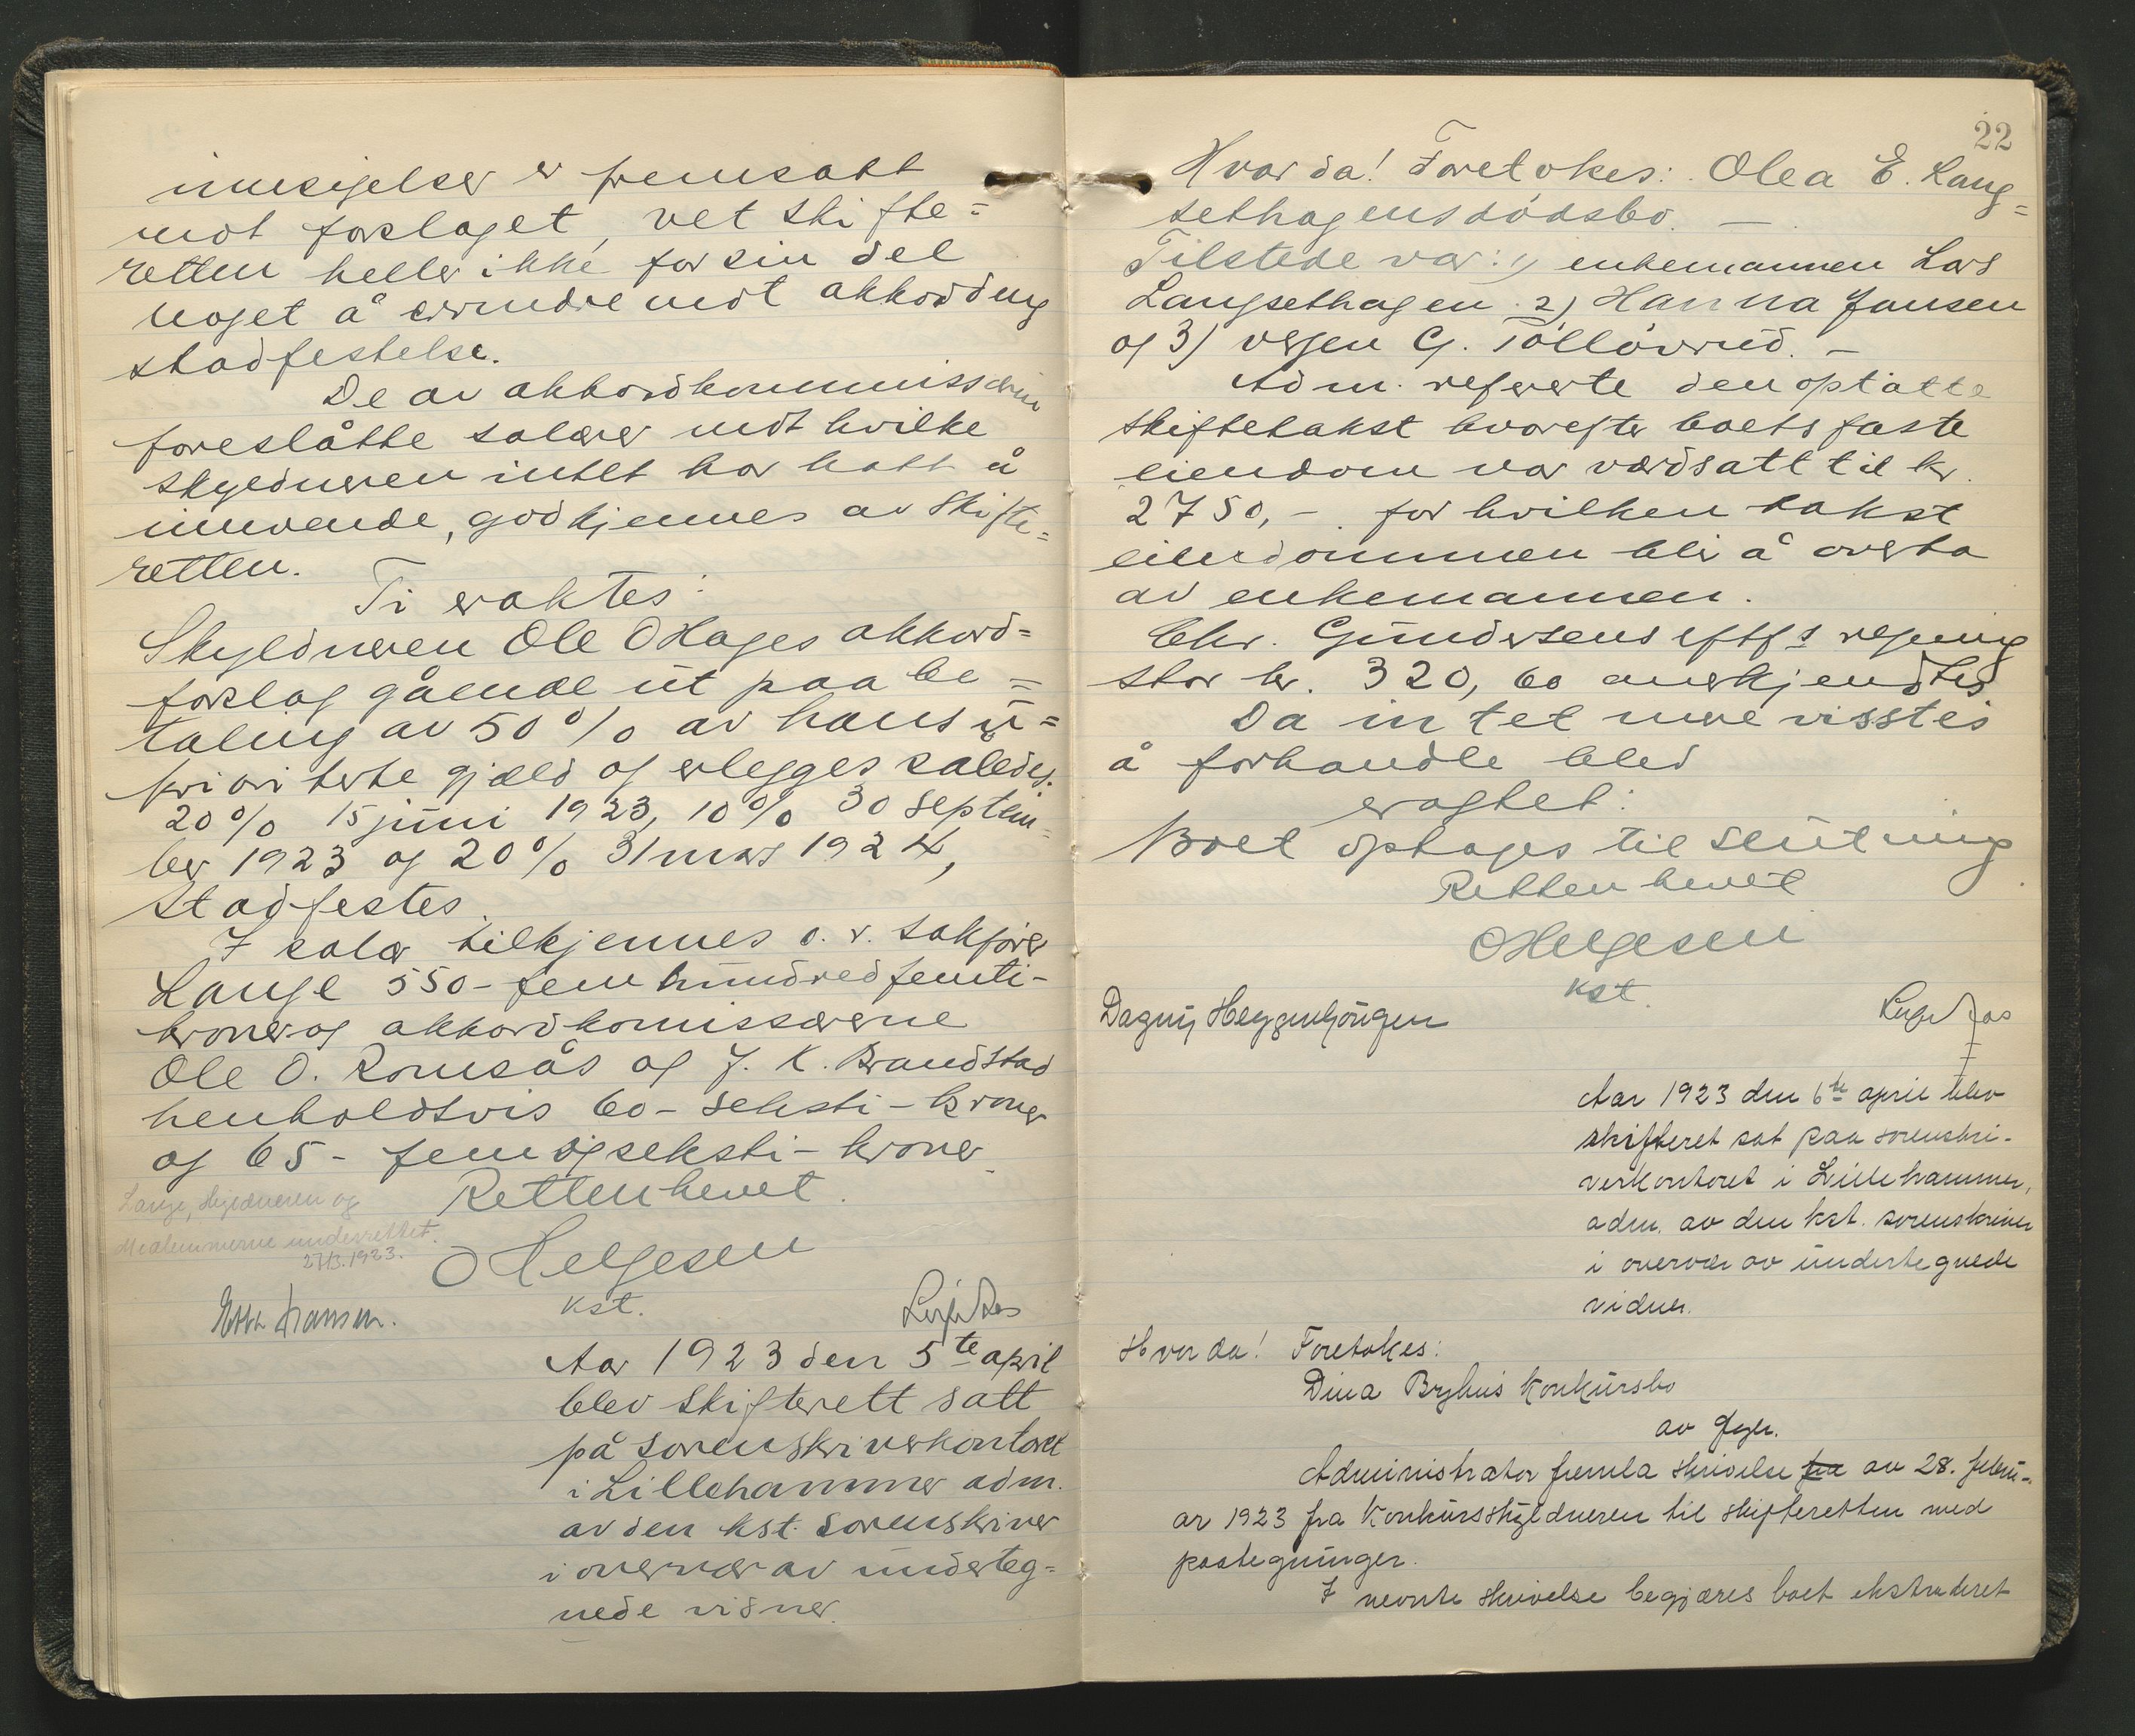 innsigelser er fremsatt
mot forslaget, vet skifte=
retten heller ikke for sin del
noget å erindre mot akkordens
stadfestelse.
De av akkordkommissærene
foreslåtte salærer mot hvilke
skyldneren intet har hatt å
innvende, godkjennes av skifte=
retten.
Ti eraktes:
Skyldneren Ole O Hages akkord=
forslag gående ut paa be=
taling av 50% av hans u=
prioriterte gjæld og erlegges således:
20% 15 juni 1923, 10% 30 septem=
ber 1923 og 20% 31 mars 1924,
stadfestes.
I salær tilkjennes o.r. sakfører
Lange 550 - femhundredfemti-
kroner og akkordkomissærene
Ole O. Romsås og J. K. Brandstad
henholdsvis 60 - seksti - kroner
og 65 - femogseksti - kroner.
Retten hevet.
Lange, skyldneren og
medlemmerne underrettet.
27/3. 1923.
O Helgesen
kst.
Hansen.
Aar 1923 den 5te april
blev skifterett satt
på sorenskriverkontoret
i Lillehammer adm.
av den kst. sorenskriver
i overvær av underteg=
nede vidner.
22
Hvorda! Foretokes: Olea E. Lang=
sethagens dødsbo. -
Tilstede var: 1) enkemannen Lars
Langsethagen 2) Hanna Jansen
og 3) vergen G. Tolløvrud. -
Adm. refererte den optatte
skiftetakst hvorefter boets faste
eiendom var værdsatt til kr.
2750,- for hvilken takst
eiendommen blir å overta
av enkemannen.
Chr. Gundersens eftfs regning
stor kr. 320,60 anerkjendtes
Da intet mere visstes
å forhandle blev
eragtet:
Boet optages til slutning
Retten hevet
O Helgesen
kst.
Dagny Heggenhougen
Aar 1923 den 6te april blev
skifteret sat paa sorenskri-
verkontoret i Lillehammer,
adm. av den kst. sorenskriver
i overvær av undertegnede
vidner.
Hvorda! Foretokes:
Dina Bryhns Konkursbo
av
Administrator fremla skrivelse fra av 28. febru-
ar 1923 fra Konkursskyldneren til skifteretten med
paategninger.
I nevnte skrivelse begjæres boet ekstraderet